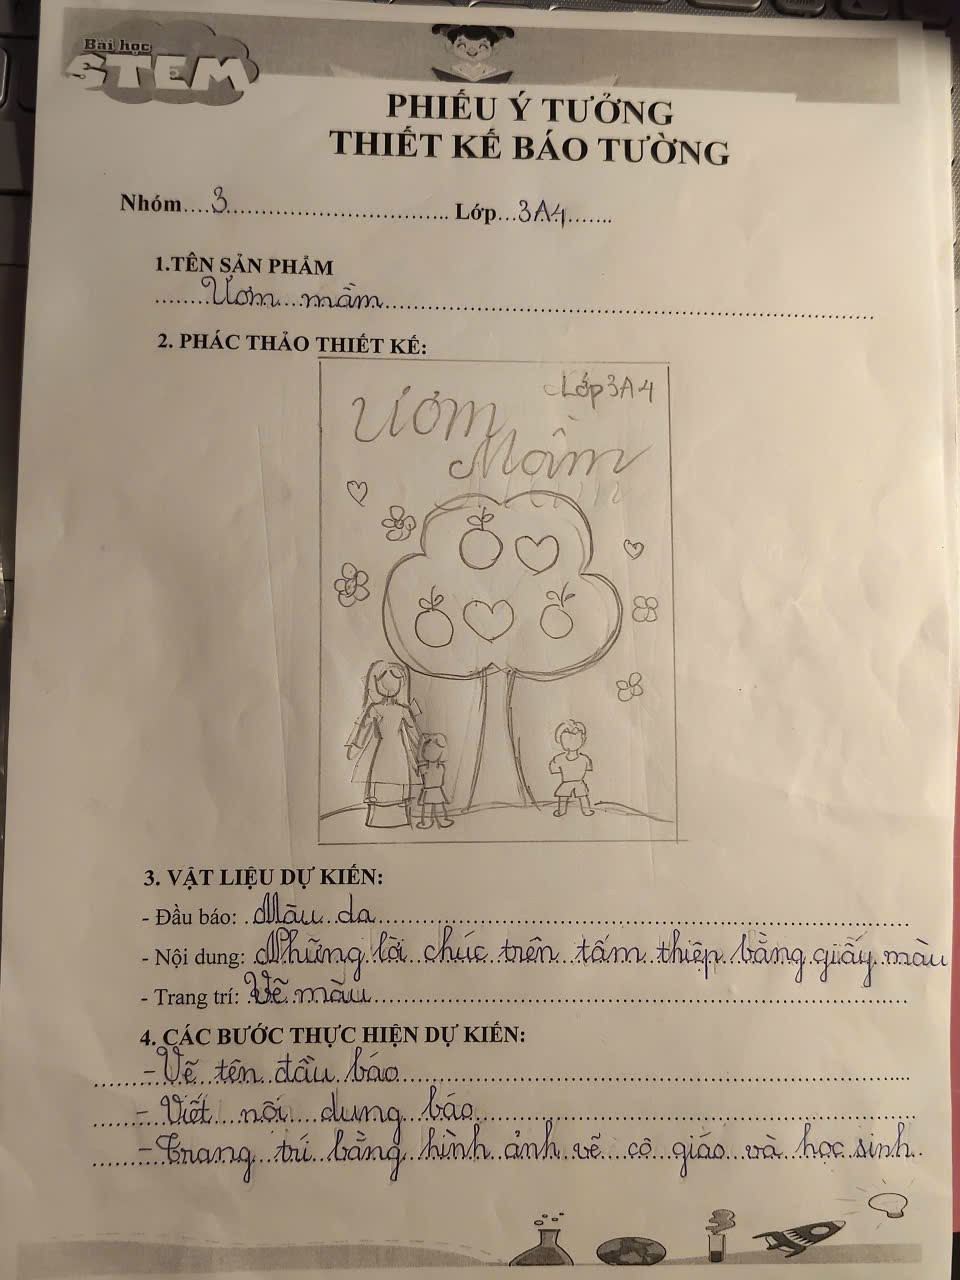 Bài học
STEM
PHIẾU Ý TƯỞNG
THIẾT KẾ BÁO TƯỜNG
Nhóm....3.................................. Lớp...3A4.......
1.TÊN SẢN PHẨM
.......Ươm mầm.......
2. PHÁC THẢO THIẾT KẾ:
Lớp 3A4
Ươm
Mầm
3. VẬT LIỆU DỰ KIẾN:
- Đầu báo: Màu da.......
- Nội dung: Những lời chúc trên tấm thiệp bằng giấy màu
- Trang trí: Vẽ màu.......
4. CÁC BƯỚC THỰC HIỆN DỰ KIẾN:
- Vẽ tên đầu báo.......
- Viết nội dung báo.......
- Trang trí bằng hình ảnh vẽ cô giáo và học sinh.